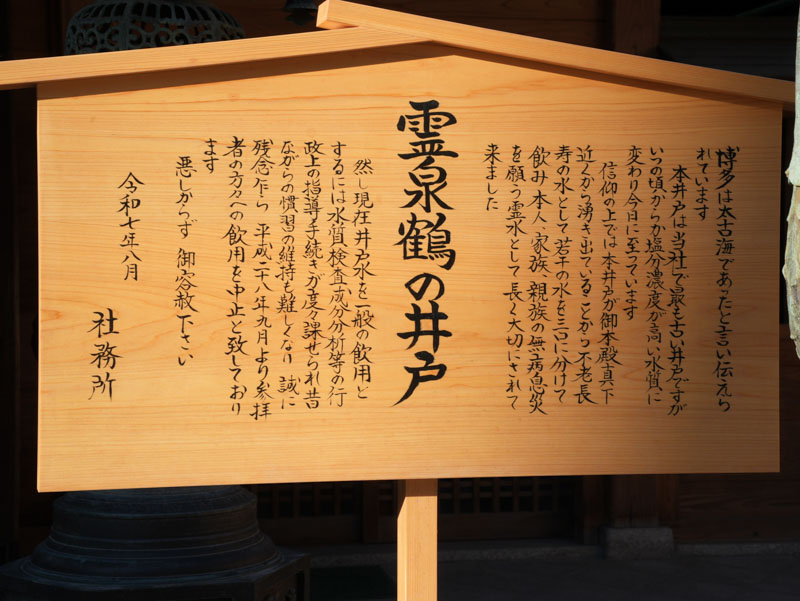 博多は太古海であったと言い伝えら
れています
本井戸は当社で最も古い井戸ですが
いつの頃からか塩分濃度が高い水質に
変わり今日に至っています
信仰の上では本井戸が御本殿真下
近くから湧き出ていることから不老長
寿の水として若干の水を三口に分けて
飲み本人、家族、親族の無病息災
を願う霊水として長く大切にされて
来ました
霊泉鶴の井戸
然し現在井戸水を一般の飲用と
するには水質検査成分分析等の行
政上の指導手続きが度々課せられ昔
ながらの慣習の維持も難しくなり 誠に
残念乍ら 平成二八年九月より参拝
者の方々への飲用を中止と致しており
ます
悪しからず 御容赦下さい
令和七年八月
社務所